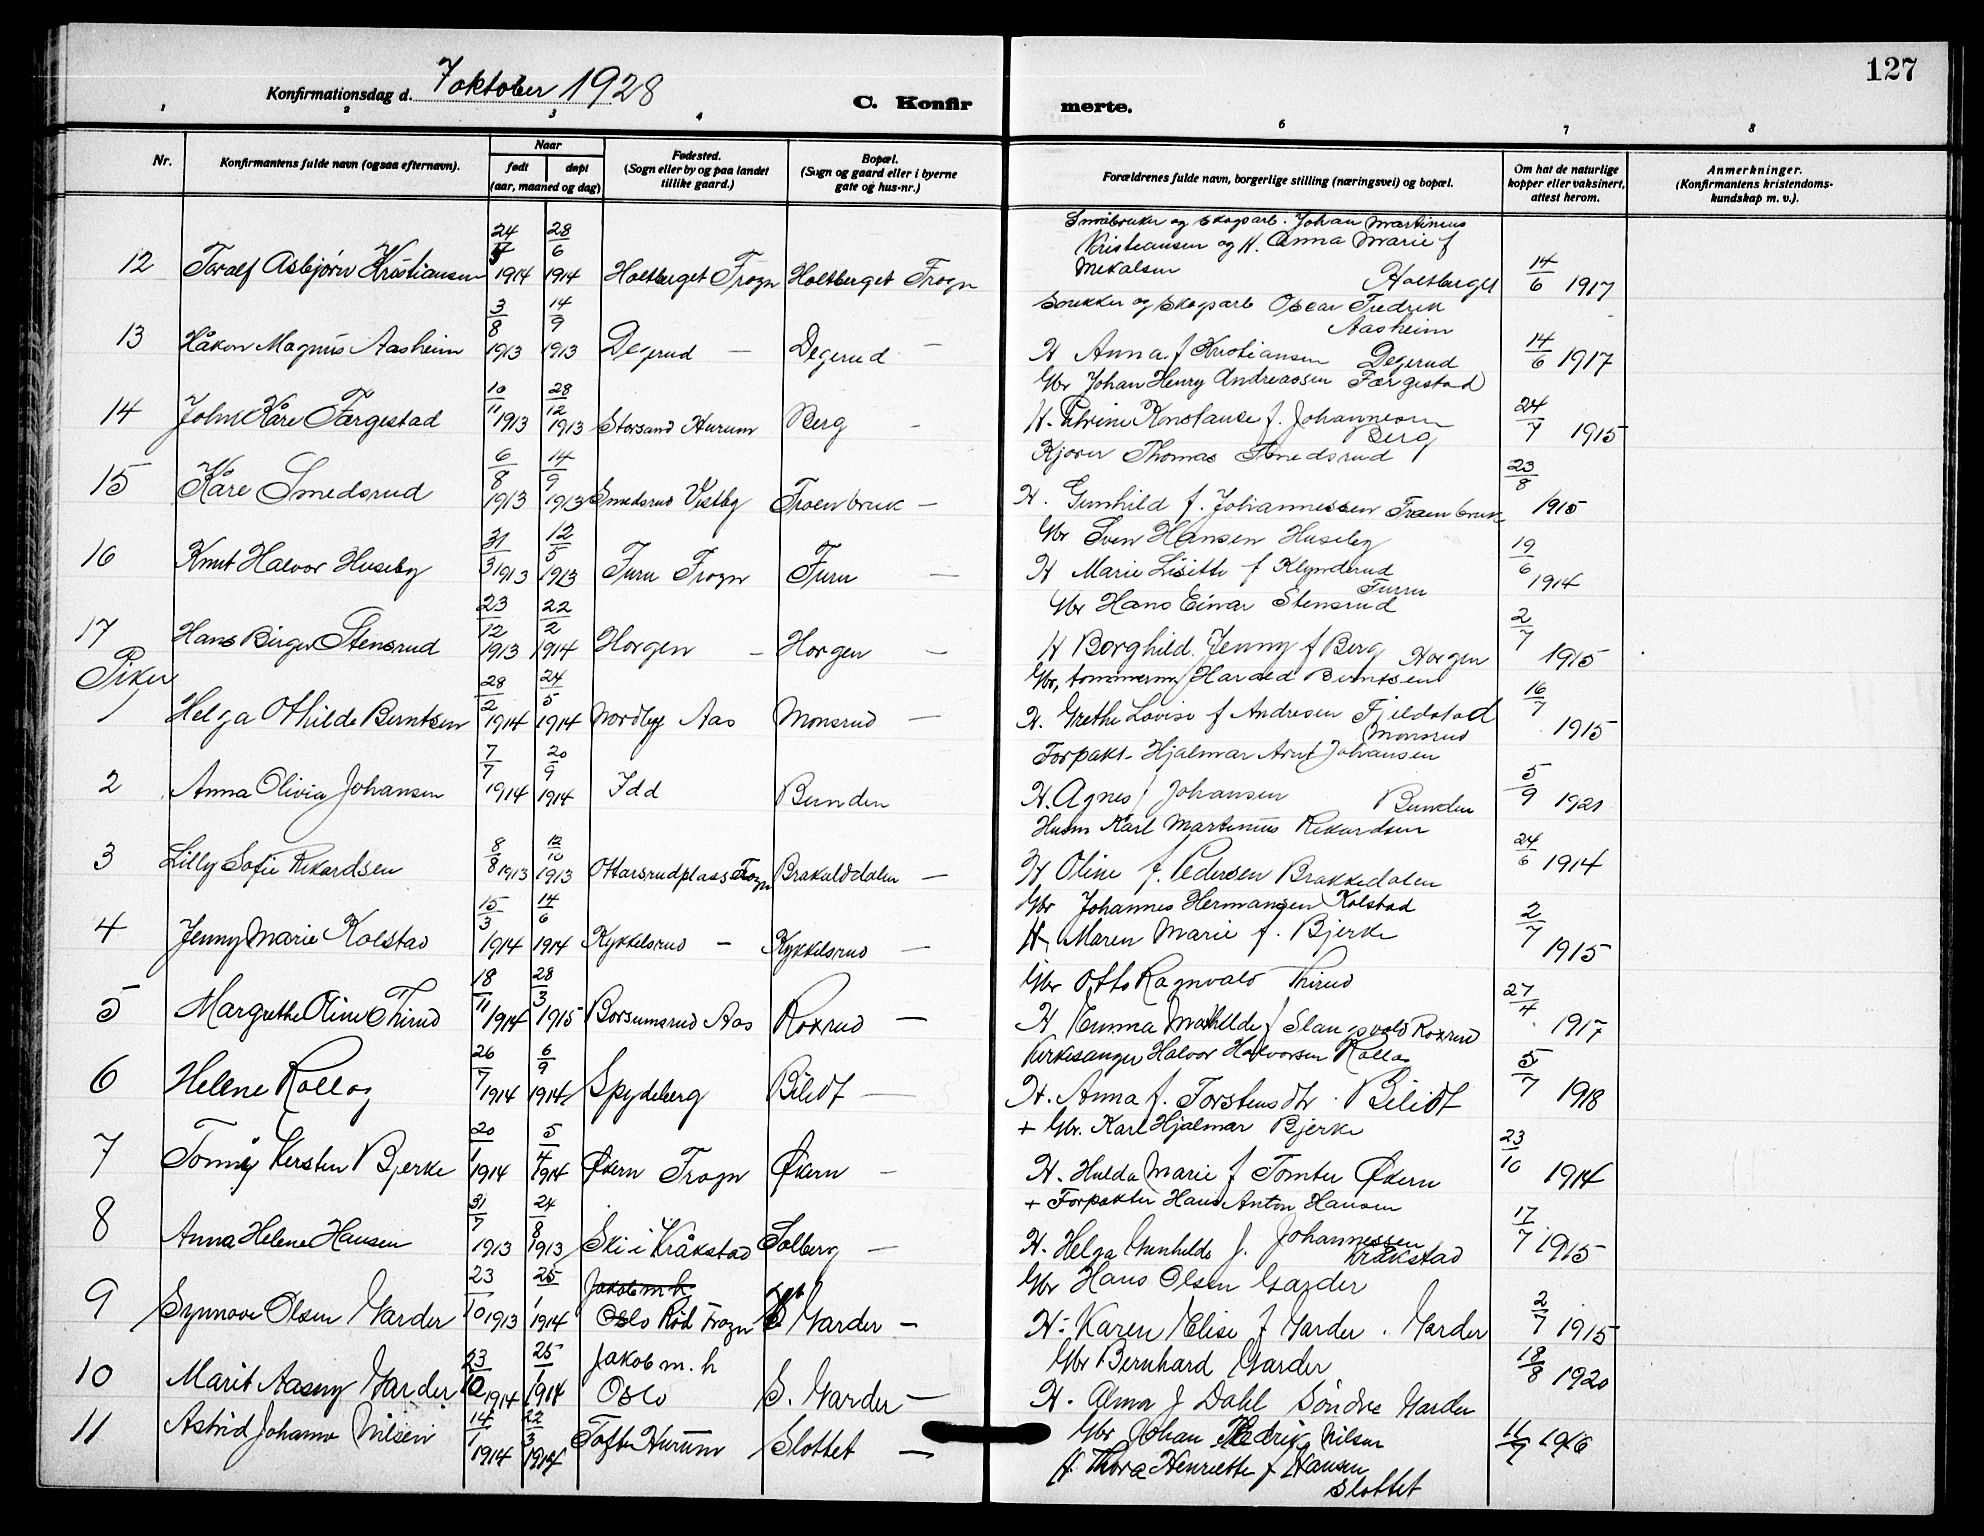 127
Konfirmationsdag d. 7 oktober 1928
C. Konfir merte.
1 2 3 4 6 7 8
Nr. Konfirmantens fulde navn (ogsaa efternavn). Naar født døpt (aar, maaned og dag) Fødested. (Sogn eller by og paa landet tillike gaard.) Bopæl. (Sogn og gaard eller i byerne gate og hus-nr.) Forældrenes fulde navn, borgerlige stilling (næringsvei) og bopæl. Om hat de naturlige kopper eller vaksinert, attest herom. Anmerkninger. (Konfirmantens kristendoms- kundskap m. v.).
Småbruker og skogsarb. Johan Martinius
Kristiansen og H. Anna Marie f
12 Toralf Asbjørn Kristiansen 24 1914 28/6 1914 Holtberget Frogn Holtberget Frogn Mekalsen Holtberget 14/6 1917
Snekker og skogsarb Oscar Fredrik
Aasheim
13 Håkon Magnus Aasheim 3/8 1913 14/9 1913 Degerud — Degerud — H Anna f Kristiansen Degerud 14/6 1917
Gbr Johan Henry Andreassen Færgestad
14 John Kåre Færgestad 10/11 1913 28/12 1913 Storsand Hurum Berg - H. Konstanse f. Johannesen Berg 24/7 1915
Thomas Smedsrud
15 Kåre Smedsrud 6/8 1913 14/9 1913 Smedsrud Vestby Froen bruk — H. Gunhild f. Johannessen Fraen bruk 23/8 1915
Gbr Sven Hansen Huseby
16 Knut Halvor Huseby 31/3 1913 12/5 1913 Furu Frogn Furu — H Marie Lisette f Klynderud Furru 19/6 1914
Gbr Hans Einar Stensrud
17 Hans Birger Stensrud 23/12 1913 22/2 1914 Horgen — Horgen — H Borghild Jenny f Berg Horgen 2/7 1915
Piker
Gbr, Harald Berntsen
1 Helga Othilde Berntsen 28/2 1914 24/5 1914 Nordby Aas Monsrud — H. Grethe Lovise f Andresen Fjeldstad Monsrud 16/7 1915
Forpakt. Hjalmar Arnt Johansen
2 Anna Olivia Johansen 7/7 1914 20/9 1914 Idd Bunden H. Agnes f Johansen Bunden 5/9 1921
Husm Karl Martinius Rikardsen
3 Lilly Sofie Rikardsen 8/8 1913 12/10 1913 Ottarsrudplass Frogn — H Oline f. Pedersen Brakkedalen 24/6 1914
Gbr Johannes Hermansen Kolstad
4 Jenny Marie Kolstad 15/3 1914 14/6 1914 Kykkelsrud — Kykkelsrud — H. Maren Marie f. Bjerke 2/7 1915
Gbr Otto Ragnvald Thirud
5 Margrethe Oline Thirud 18/11 1914 28/3 1915 Borsumsrud Aas Roxrud — H Emma Mathilde f Roxrud 27/4 1917
Kirkesanger Halvor Halvorsen Rollag
6 Helene Rollag 26/7 1914 6/9 1914 Spydeberg Bilidt — H. Anna f. Torstensdtr. Bilidt 5/7 1918
+ Gbr. Karl Hjalmar Bjerke
7 Kersten Bjerke 20/1 1914 5/4 1914 Økern Frogn Økern — H. Hulda Marie f Tomter Økern 23/10 1914
+ Forpakter Hans Anton Hansen
8 Anna Helene Hansen 31/7 1913 24/8 1913 Ski i Kråkstad Solberg — H. Helga Gunhilde f. Johannessen Kråkstad 17/7 1915
Gbr Hans Olsen Garder
9 Synnøve Olsen Garder 23/10 1913 25/1 1914 Jakob m. h Oslo Rød Frogn Garder — H. Karen Elise f Garder. Garder 2/7 1915
Gbr Bernhard Garder
10 Marit Aasny Garder 23/10 1914 25/1 1914 Jakob m. h Oslo S. Garder — H. Alma f Dahl Søndre Garder 18/8 1920
11 Astrid Johanne Nilsen 14/1 1914 22/3 1914 Tofte Hurum Slottet — Gbr Johan Fredrik Nilsen 1916
H. Thora Henriette f Hansen
Slottet